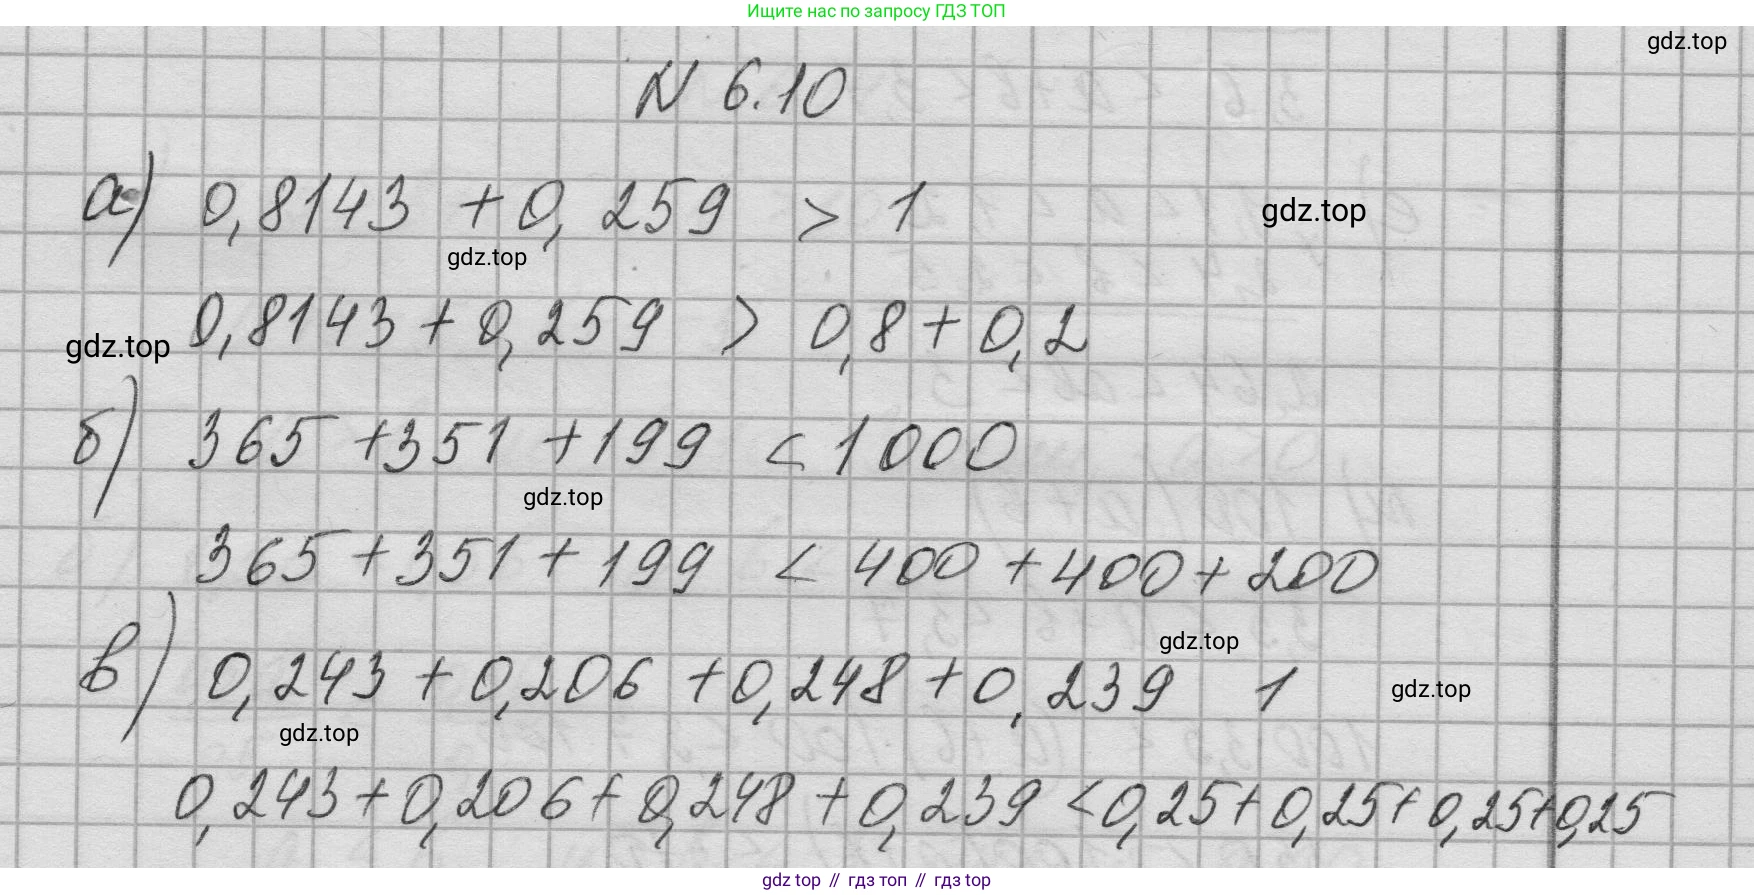 Ищите нас по запросу ГДЗ ТОП
gdz.top
N 6.10
а) 0,8143 + 0,259 > 1
gdz.top
gdz.top
0,8143 + 0,259 > 0,8 + 0,2
gdz.top
б) 365 + 351 + 199 < 1000
gdz.top
365 + 351 + 199 < 400 + 400 + 200
gdz.top
в) 0,243 + 0,206 + 0,248 + 0,239 1
gdz.top
gdz.top
0,243 + 0,206 + 0,248 + 0,239 < 0,25 + 0,25 + 0,25 + 0,25
gdz top // гдз топ // гдз top